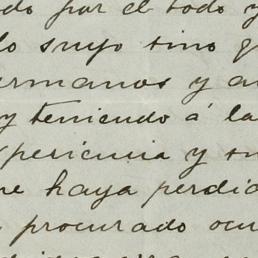 do por el todo y
lo suyo sino q
ermanos y a
y teniendo á la
xpericuia y su
ue haya perdid
procurado ocu